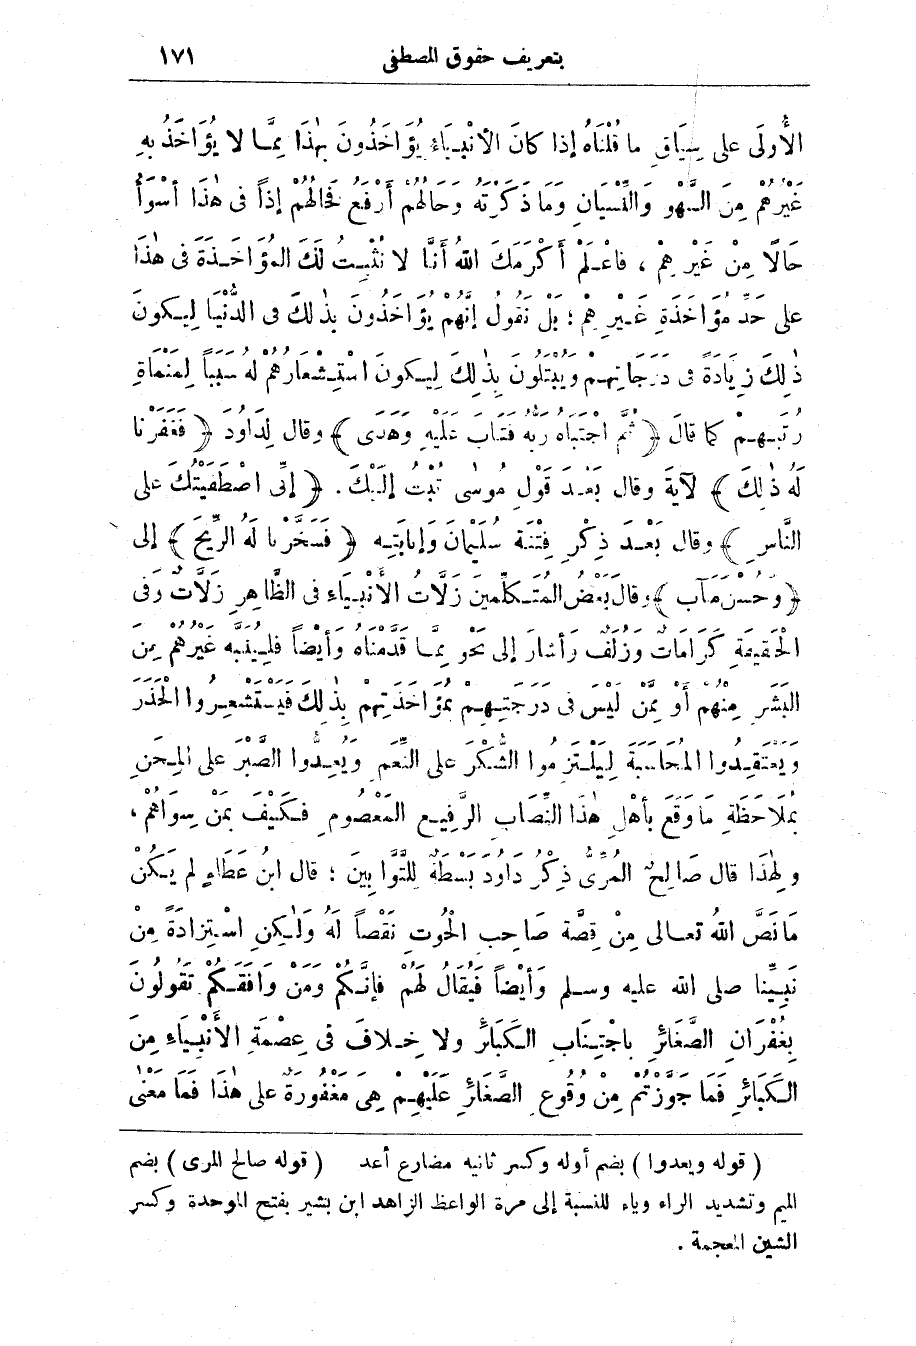 بتعريف حقوق المصطفى ١٧١
الأُولَى على سِيَاقِ ما قُلْنَاهُ إذا كانَ الأنْبِيَاءُ يُؤَاخَذُونَ بِهٰذَا مِمَّا لا يُؤَاخَذُ بهِ
غَيْرُهُمْ مِنَ السَّهْوِ وَالنِّسْيَانِ وَمَا ذَكَرْتَهُ وَحَالُهُمْ أَرْفَعُ فَحَالُهُمْ إذاً فى هٰذَا أسْوَأُ
حَالًا مِنْ غَيْرِهِمْ ، فاعْلَمْ أَكْرَمَكَ اللهُ أنَّا لا نُثْبِتُ لَكَ المُؤَاخَذَةَ فى هٰذا
على حَدِّ مُؤَاخَذَةِ غَيْرِهِمْ ؛ بَلْ نَقُولُ إنَّهُمْ يُؤَاخَذُونَ بذٰلكَ فى الدُّنْيَا لِيكونَ
ذٰلِكَ زِيَادَةً فى دَرَجَاتِهِمْ ويُبْتَلُونَ بِذٰلِكَ لِيكونَ اسْتِشْعَارُهُمْ لهُ سَبَباً لِمَنْمَاةِ
رُتَبِهِمْ كما قالَ ﴿ ثُمَّ اجْتَبَاهُ رَبُّهُ فَتَابَ عَلَيْهِ وَهَدَى ﴾ وقال لِدَاوُدَ ﴿ فَغَفَرْنا
لَهُ ذٰلِكَ ﴾ لآيَةَ وقال بَعْدَ قَوْلِ مُوسٰى تُبْتُ إلَيْكَ . ﴿ إنِّى اصْطَفَيْتُكَ على
النَّاسِ ﴾ وقال بَعْدَ ذِكْرِ فِتْنَةِ سُلَيْمانَ وَإنابَتِهِ ﴿ فَسَخَّرْنا لَهُ الرِّيحَ ﴾ إلى
﴿ وَحُسْنَ مَآب ﴾ وقالَ بَعْضُ المُتَكلِّمِينَ زَلَّاتُ الأنْبِيَاءِ فى الظَّاهِرِ زَلَّاتٌ وَفى
الْحَقِيقَةِ كَرَامَاتٌ وَزُلَفٌ وَأشارَ إلى نَحْوٍ مِمَّا قَدَّمْنَاهُ وَأيْضاً فلْيُنَبِّهْ غَيْرُهُمْ مِنَ
البَشَرِ مِنْهُمْ أوْ مِمَّنْ لَيْسَ فى دَرَجَتِهِمْ بِمُؤَاخَذَتِهِمْ بِذٰلِكَ فَيَسْتَشْعِرُوا الْحَذَرَ
وَيَعْتَقِدُوا المُحَاسَبَةَ لِيَلْتَزِمُوا الشُّكْرَ على النِّعَمِ وَيُعِدُّوا الصَّبْرَ على المِحَنِ
بِمُلَاحَظَةِ مَا وَقَعَ بأهْلِ هٰذَا النِّصَابِ الرَّفِيعِ المَعْصُومِ فكَيْفَ بمَنْ سِوَاهُمْ ،
ولِهٰذَا قال صَالِحٌ المُرِّىُّ ذِكْرُ دَاوُدَ بَسْطَةٌ لِلتَّوَّابِينَ ؛ قال ابنُ عَطَاءٍ لم يَكنْ
مَا نَصَّ اللهُ تعالى مِنْ قِصَّةِ صَاحِبِ الْحُوتِ نَقْصاً لَهُ وَلٰكِنِ اسْتِزَادَةً مِنْ
نَبِيِّنا صلى الله عليه وسلم وَأيْضاً فَيُقَالُ لَهُمْ فإنَّكُمْ ومَنْ وَافَقَكُمْ تَقُولُونَ
بِغُفْرَانِ الصَّغَائِرِ باجْتِنَابِ الكَبَائِرِ ولا خِلافَ فى عِصْمَةِ الأنْبِيَاءِ مِنَ
الكَبَائِرِ فَمَا جَوَّزْتُمْ مِنْ وُقُوعِ الصَّغَائِرِ عَلَيْهِمْ هِىَ مَغْفُورَةٌ على هٰذَا فَمَا مَعْنٰى
( قوله ويعدوا ) بضم أوله وكسر ثانيه مضارع أعد ( قوله صالح المرى ) بضم
الميم وتشديد الراء وياء للنسبة إلى مرة الواعظ الزاهد ابن بشير بفتح الموحدة وكسر
الشين المعجمة .